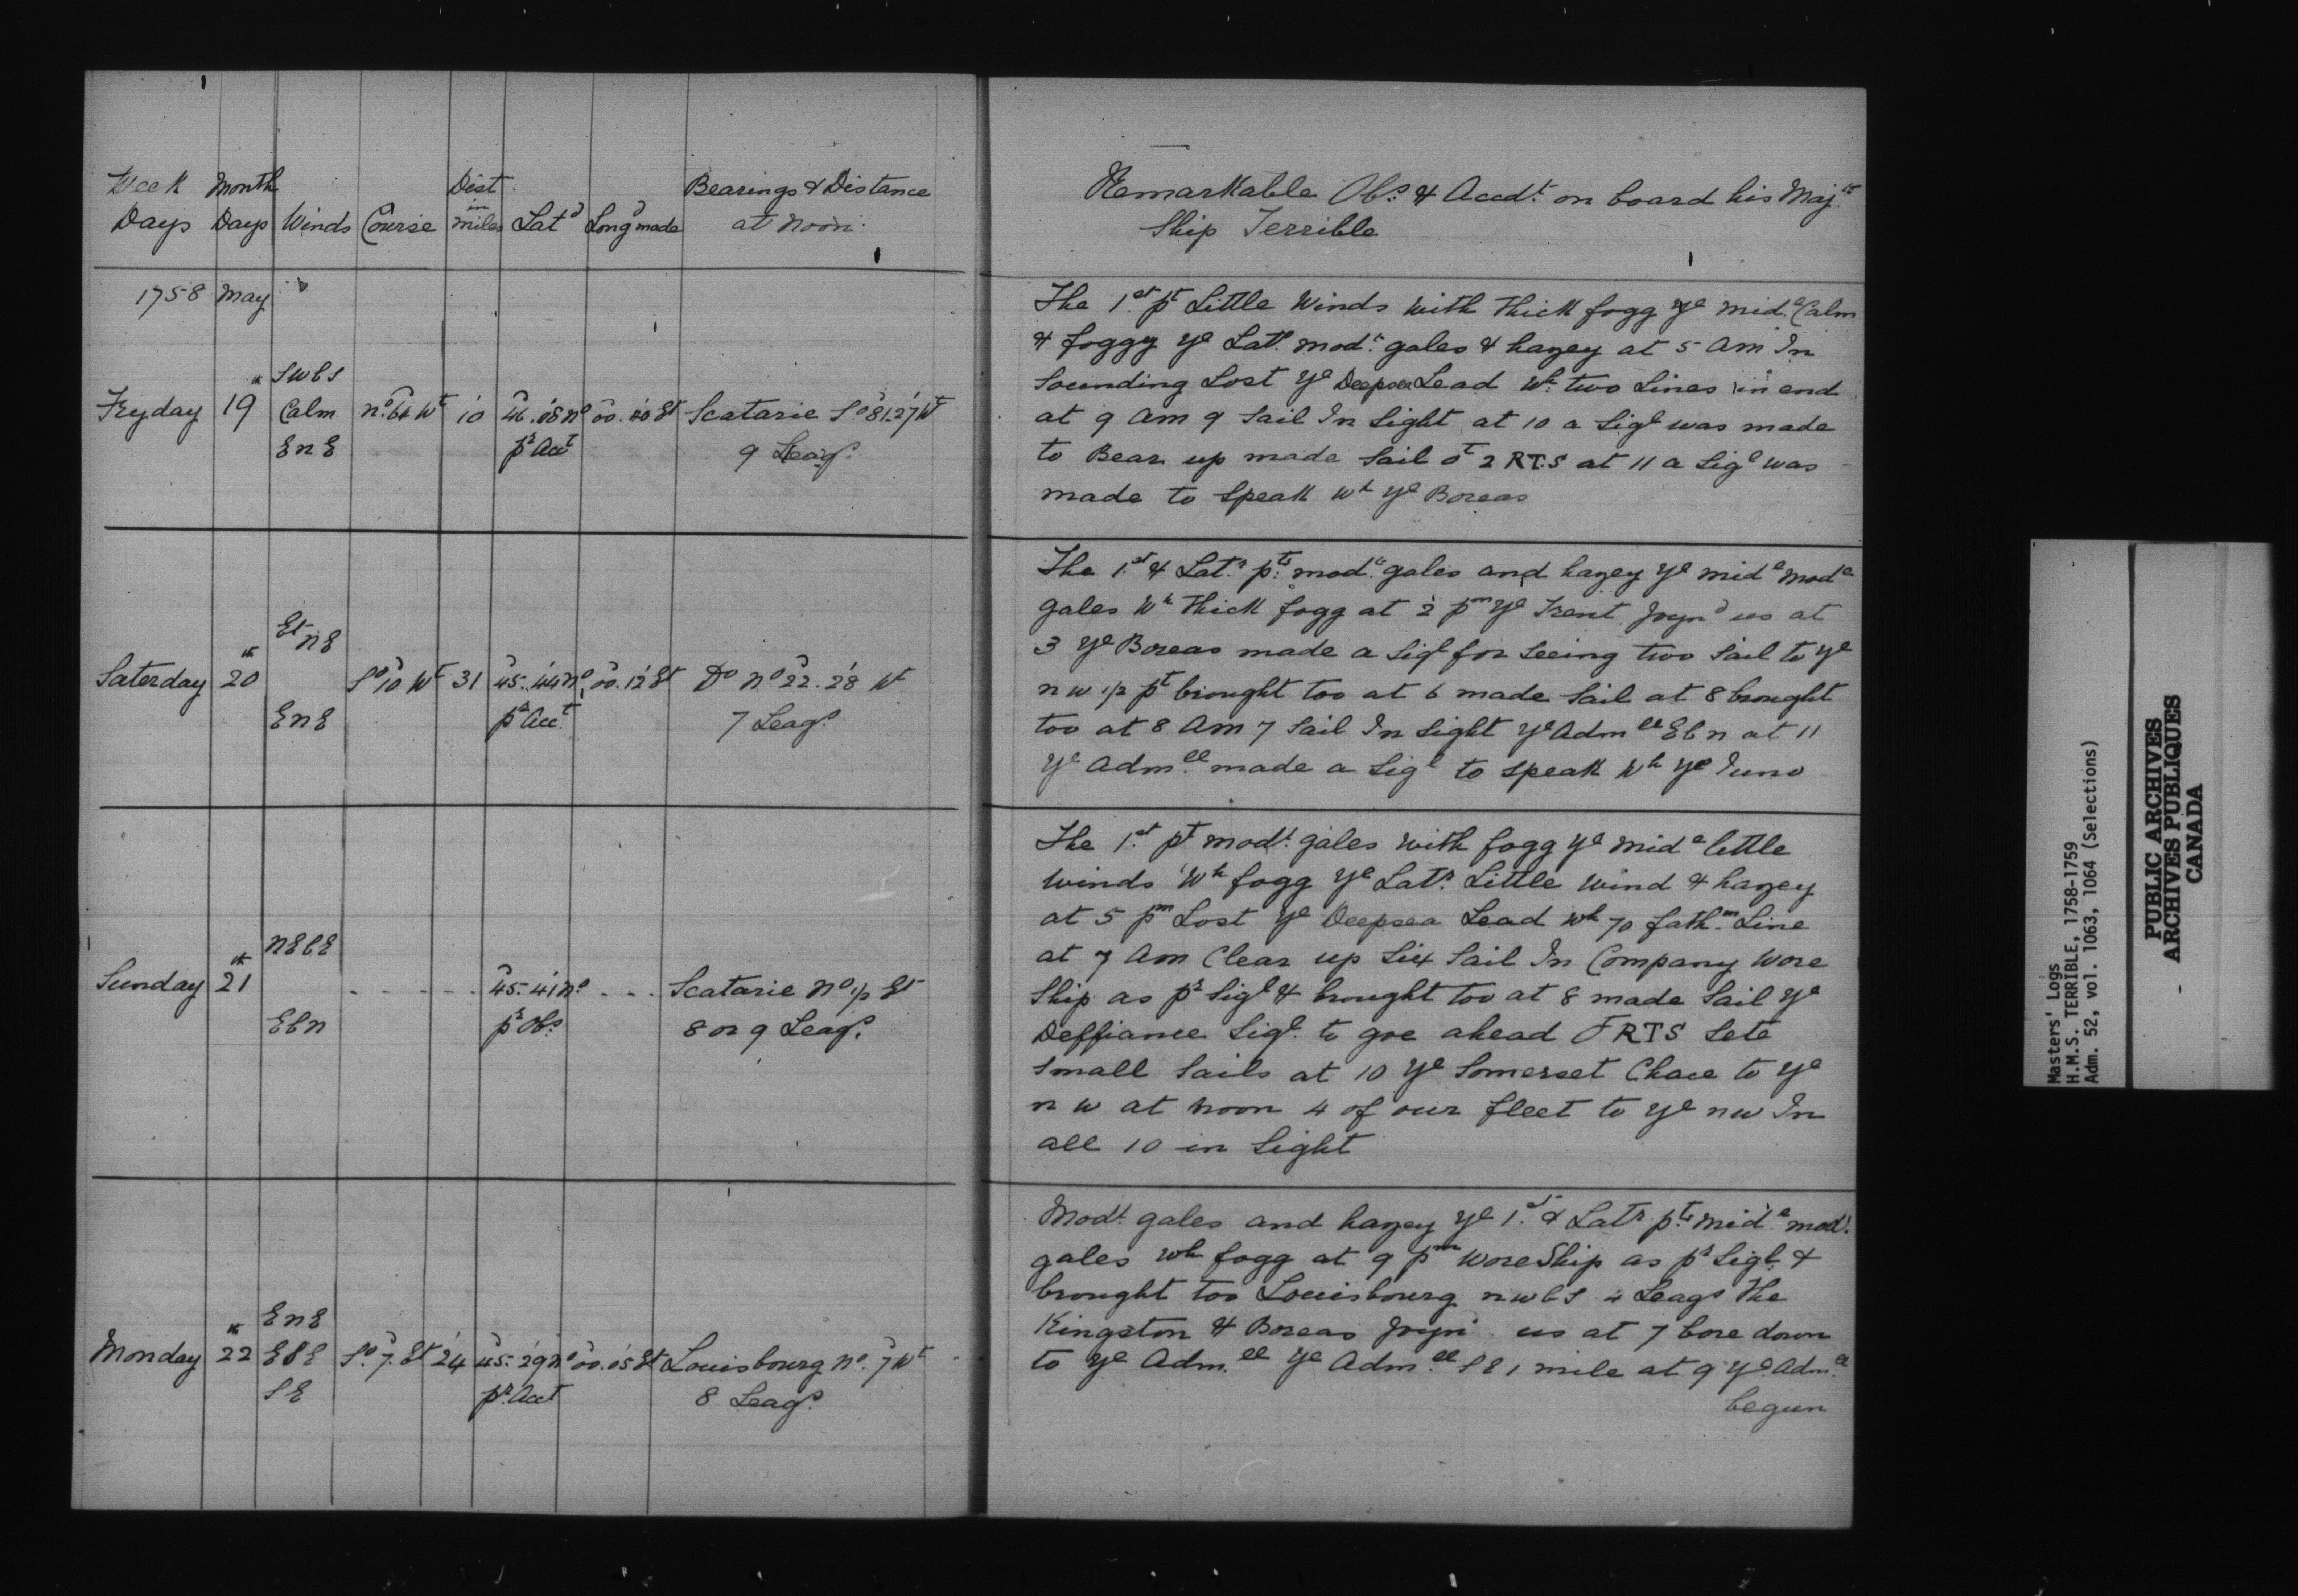 Week Month Dist Bearings & Distance
Days Days Winds Course in miles Latd Longd made at Noon
1758 May
SWbS
Fryday 19th Calm no 64 Wt 10 46.08 no 00.40 Et Scatarie So 81.27 Wt
EnE pr Acct 9 Leags.
Et nE
Saterday 20th So 10 Wt 31 45.44 no 00.12 Et Do No 22.28 Wt
EnE pr Acct. 7 Leags.
nEbE
Sunday 21st - - - - - 45.41 no - - - Scatarie No 1/2 Et
Ebn pr Obs. 8 or 9 Leags.
EnE
Monday 22 ESE So. 7. Et 24 45.29 no 00.05 Et Louisbourg No. 7 Wt
SE pr. Acct 8 Leags.
Remarkable Obs. & Accdt. on board his Majts
Ship Terrible
The 1st pt Little Winds with thick fogg ye mide. Calm
& foggy ye Latr. mode. gales & hazey at 5 am In
Sounding Lost ye Deepsea Lead wh. two Lines in end
at 9 Am 9 Sail In Sight at 10 a Sigl was made
to Bear up made Sail ot 2 RTS at 11 a Sigl was
made to Speak wh ye Boreas
The 1st & Latr. pts. mode. gales and hazey ye mide Mode
gales wh thick fogg at 2 pm ye Trent joynd us at
3 ye Boreas made a Sigl for Seeing two Sail to ye
nw 1/2 pt brought too at 6 made Sail at 8 brought
too at 8 Am 7 Sail In Sight ye Admll Ebn at 11
ye Admll made a Sigl to Speak wh ye Juno
The 1st. pt modt. gales with fogg ye mide little
winds wh fogg ye Latr. Little wind & hazey
at 5 pm Lost ye Deepsea Lead wh 70 fathm. Line
at 7 Am Clear up Six Sail In Company Wore
Ship as pr Sigl & brought too at 8 made Sail ye
Deffiance Sigl. to goe ahead RTS Sete
Small Sails at 10 ye Somerset Chace to ye
n w at noon 4 of our fleet to ye nw In
all 10 in Sight
Modt. gales and hazey ye 1st. & Latr. pts. mide. mod.
gales wh fogg at 9 pm wore Ship as pr Sigl &
brought too Louisbourg nwbS 4 Leags The
Kingston & Boreas joynd us at 7 bore down
to ye Admll ye Admll SE 1 mile at 9 ye Admll
begun
Masters' Logs
H.M.S. TERRIBLE, 1758-1759
Adm. 52, vol. 1063, 1064 (Selections)
PUBLIC ARCHIVES
ARCHIVES PUBLIQUES
CANADA